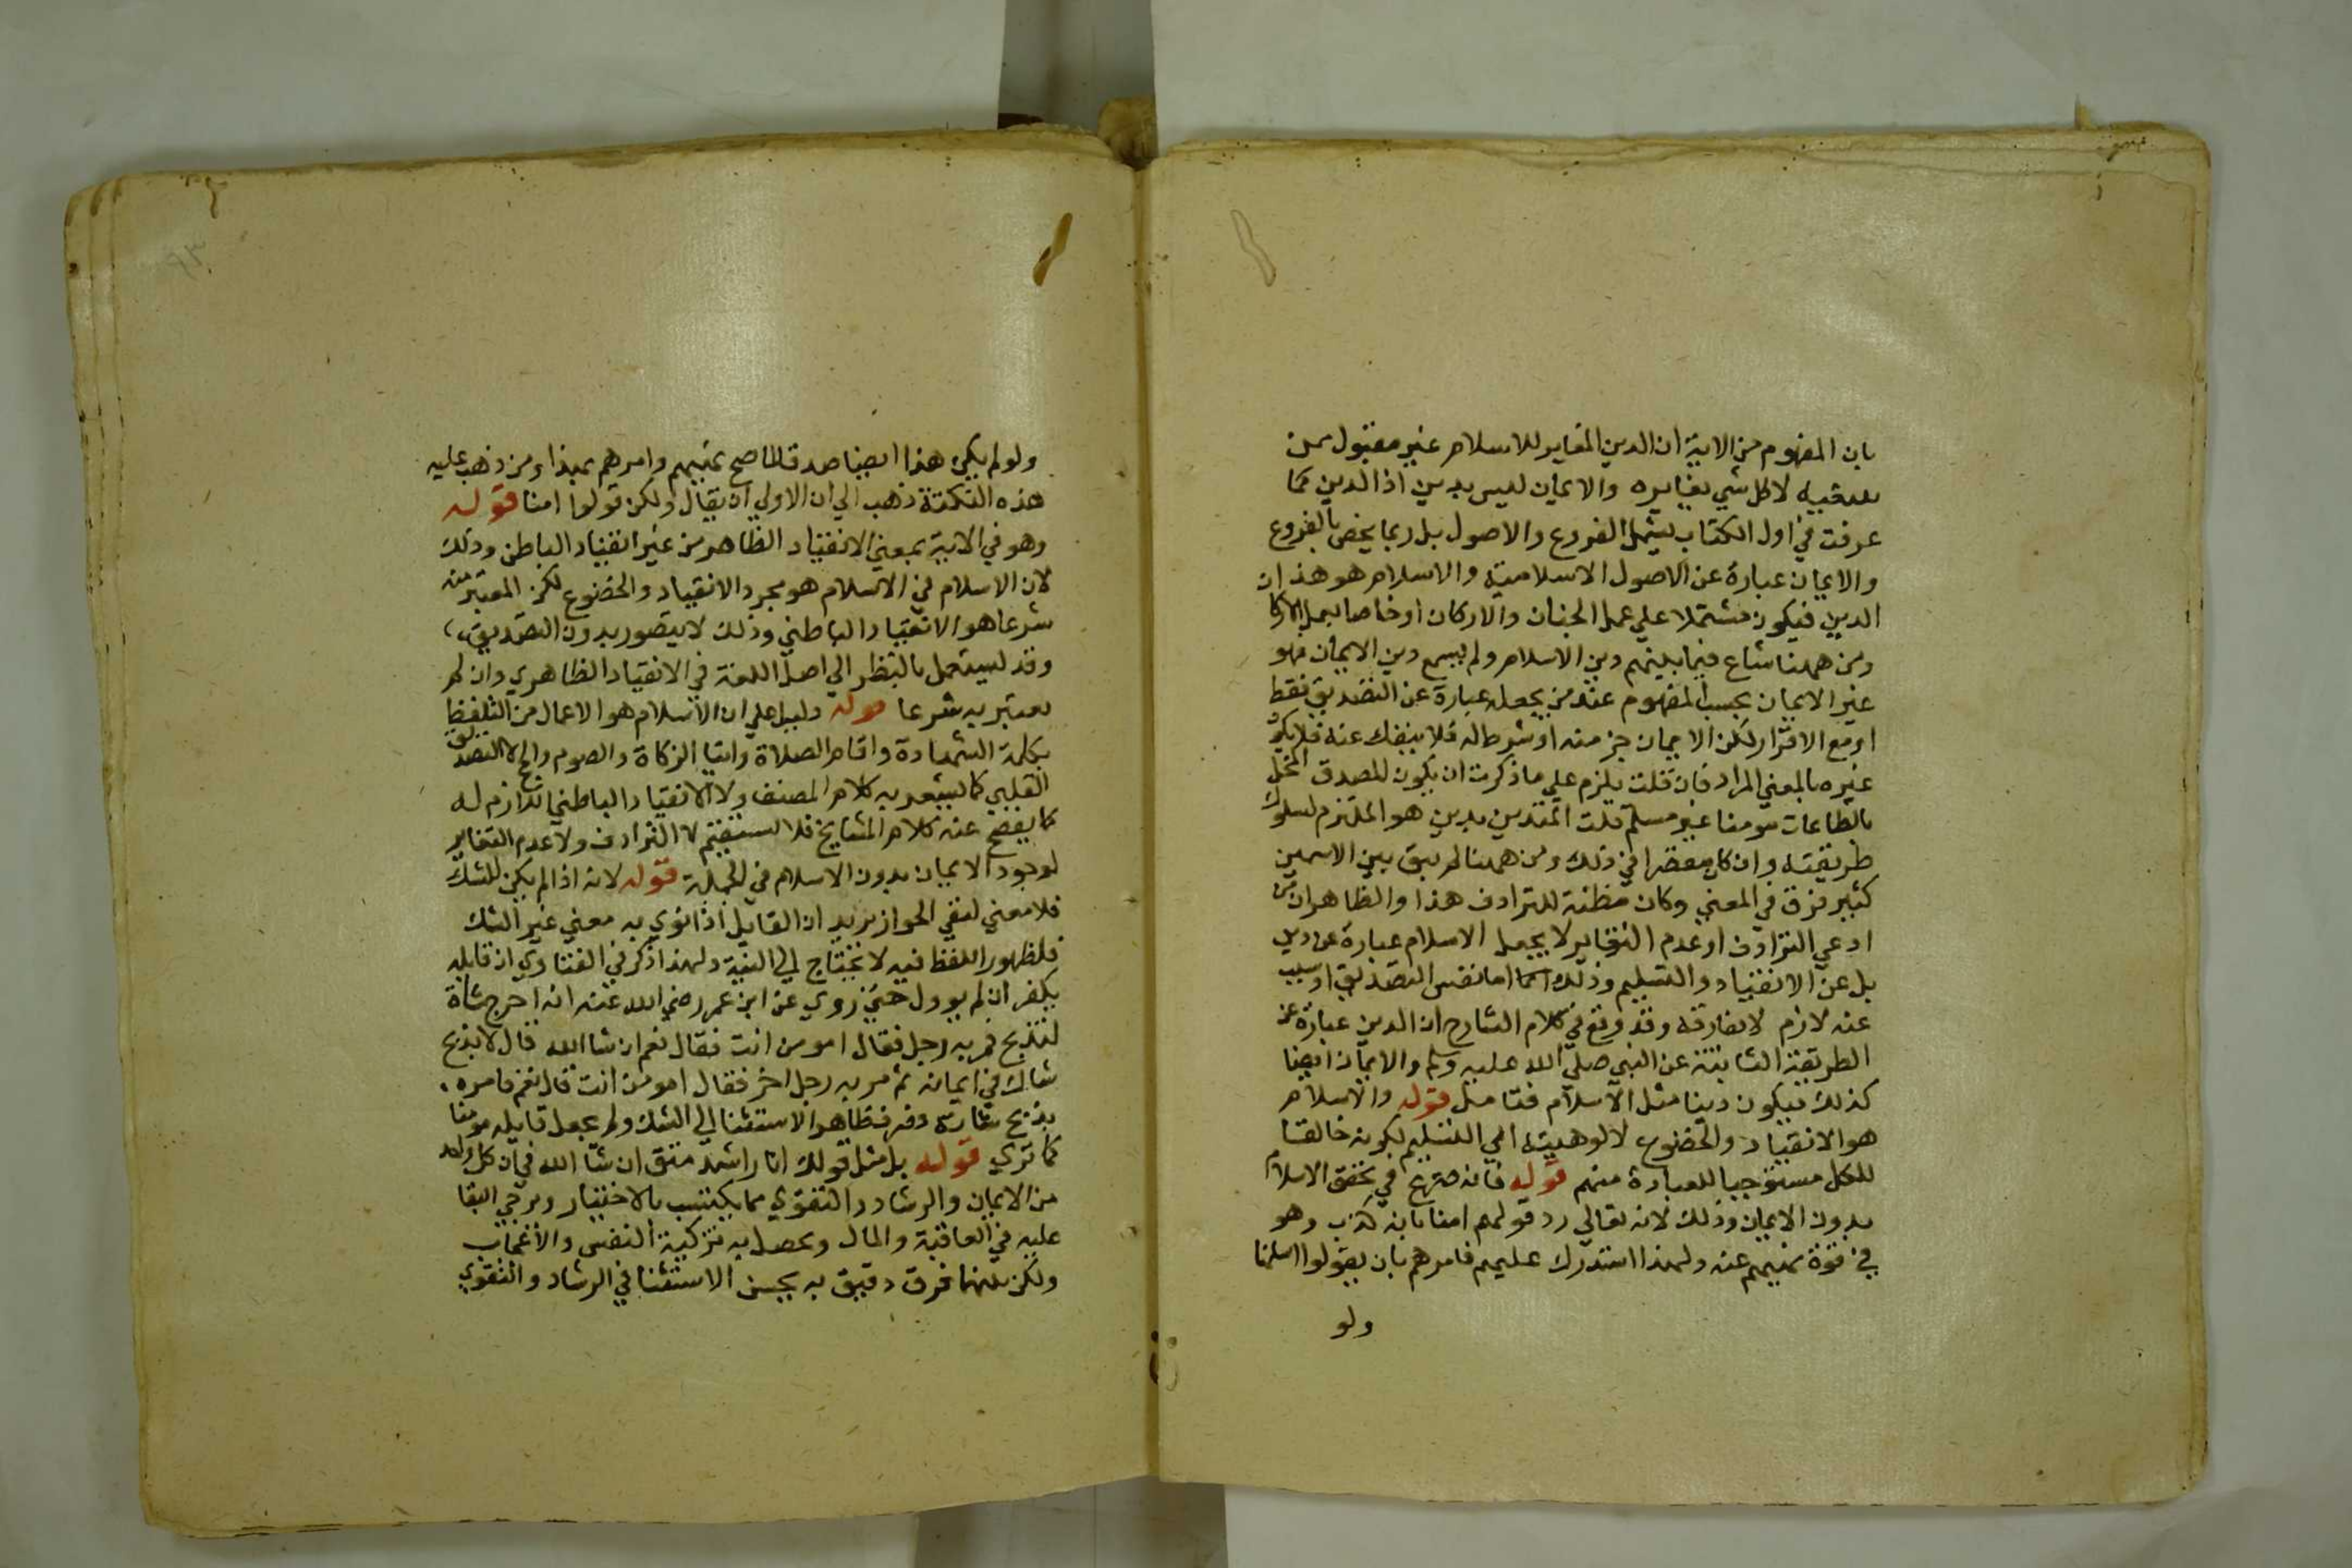 بان المفهوم من الاية ان الدين المغاير للاسلام غير مقبول ممن
يبتغيه لا كل شي يغايره والايمان ليس بدين اذ الدين كما
عرفت في اول الكتاب يشمل الفروع والاصول بل ربما يخص بالفروع
والايمان عبارة عن الاصول الاسلامية والاسلام هو هذان
الدين فيكون مشتملا علي عمل الجنان والاركان او خاصا بعمل الاركا
ومن ههنا شاع فيما بينهم دين الاسلام ولم يسمع دين الايمان فهو
غير الايمان بحسب المفهوم عند من يجعله عبارة عن التصديق فقط
او مع الاقرار لكن الايمان جز منه او شرط له فلا ينفك عنه فلا يكون
غيره بالمعني المراد فان قلت يلزم علي ما ذكرت ان يكون المصدق المخل
بالطاعات مومنا غير مسلم قلت المتدين بدين هو الملتزم لسلوك
طريقته وان كان مقصرا في ذلك ومن ههنا لم يبق بين الاسمين
كثير فرق في المعني وكان مظنة للترادف هذا والظاهر ان من
ادعي الترادف او عدم التغاير لا يجعل الاسلام عبارة عن دين
بل عن الانقياد والتسليم وذلك اما نفس التصديق او سبب
عنه لازم لا يفارقه وقد وقع في كلام الشارح ان الدين عبارة عن
الطريقة الثابتة عن النبي صلي الله عليه وسلم والايمان ايضا
كذلك فيكون دينا مثل الاسلام فتامل قوله والاسلام
هو الانقياد والخضوع لالوهيته اي التسليم بكونه خالقا
للكل مستوجبا للعبادة منهم قوله فانه صريح في تحقق الاسلام
بدون الايمان وذلك لانه تعالي رد قولهم امنا بانه كذب وهو
في قوة نهيهم عنه ولهذا استدرك عليهم فامرهم بان يقولوا اسلمنا
ولو
ولو لم يكن هذا ايضا صدقا لما صح نهيهم وامرهم بهذا ومن ذهب عليه
هذه النكتة ذهب الي ان الاولي ان يقال ولكن قولوا امنا قوله
وهو في الاية بمعني الانقياد الظاهر من غير انقياد الباطن وذلك
لان الاسلام في الاسلام هو مجرد الانقياد والخضوع لكن المعتبر منه
شرعا هو الانقياد الباطني وذلك لا يتصور بدون التصديق
وقد يستعمل بالنظر الي اصل اللغة في الانقياد الظاهري وان لم
يعتبر به شرعا قوله دليل علي ان الاسلام هو الاعمال من التلفظ
بكلمة الشهادة واقام الصلاة وايتا الزكاة والصوم والحج لا التصديق
القلبي كما يشعر به كلام المصنف ولا الانقياد الباطني اللازم له
كما يفصح عنه كلام المشايخ فلا يستقيم لا الترادف ولا عدم التغاير
لوجود الايمان بدون الاسلام في الجملة قوله لانه اذا لم يكن للشك
فلا معني لنفي الجواز يريد ان القايل اذا نوي به معني غير الشك
فلظهور اللفظ فيه لا تحتاج الي النية ولهذا ذكر في الفتاوي ان قايله
يكفر ان لم يوول حتي روي عن ابن عمر رضي الله عنه انه اخرج شاة
لتذبح فمر به رجل فقال امومن انت فقال نعم ان شا الله قال لا يذبح
شاك في ايمانه ثم مر به رجل اخر فقال امومن انت قال نعم فامره
بذبح شاته فظاهر الاستثنا الي الشك ولم يجعل قايله مومنا
كما تري قوله بل مثل قولك انا راشد متق ان شا الله في ان كل واحد
من الايمان والرشاد والتقوي مما يكتسب بالاختيار ويرجي البقا
عليه في العاقبة والمال ويحصل به تزكية النفس والاعجاب
ولكن بينهما فرق دقيق به يحسن الاستثنا في الرشاد والتقوي